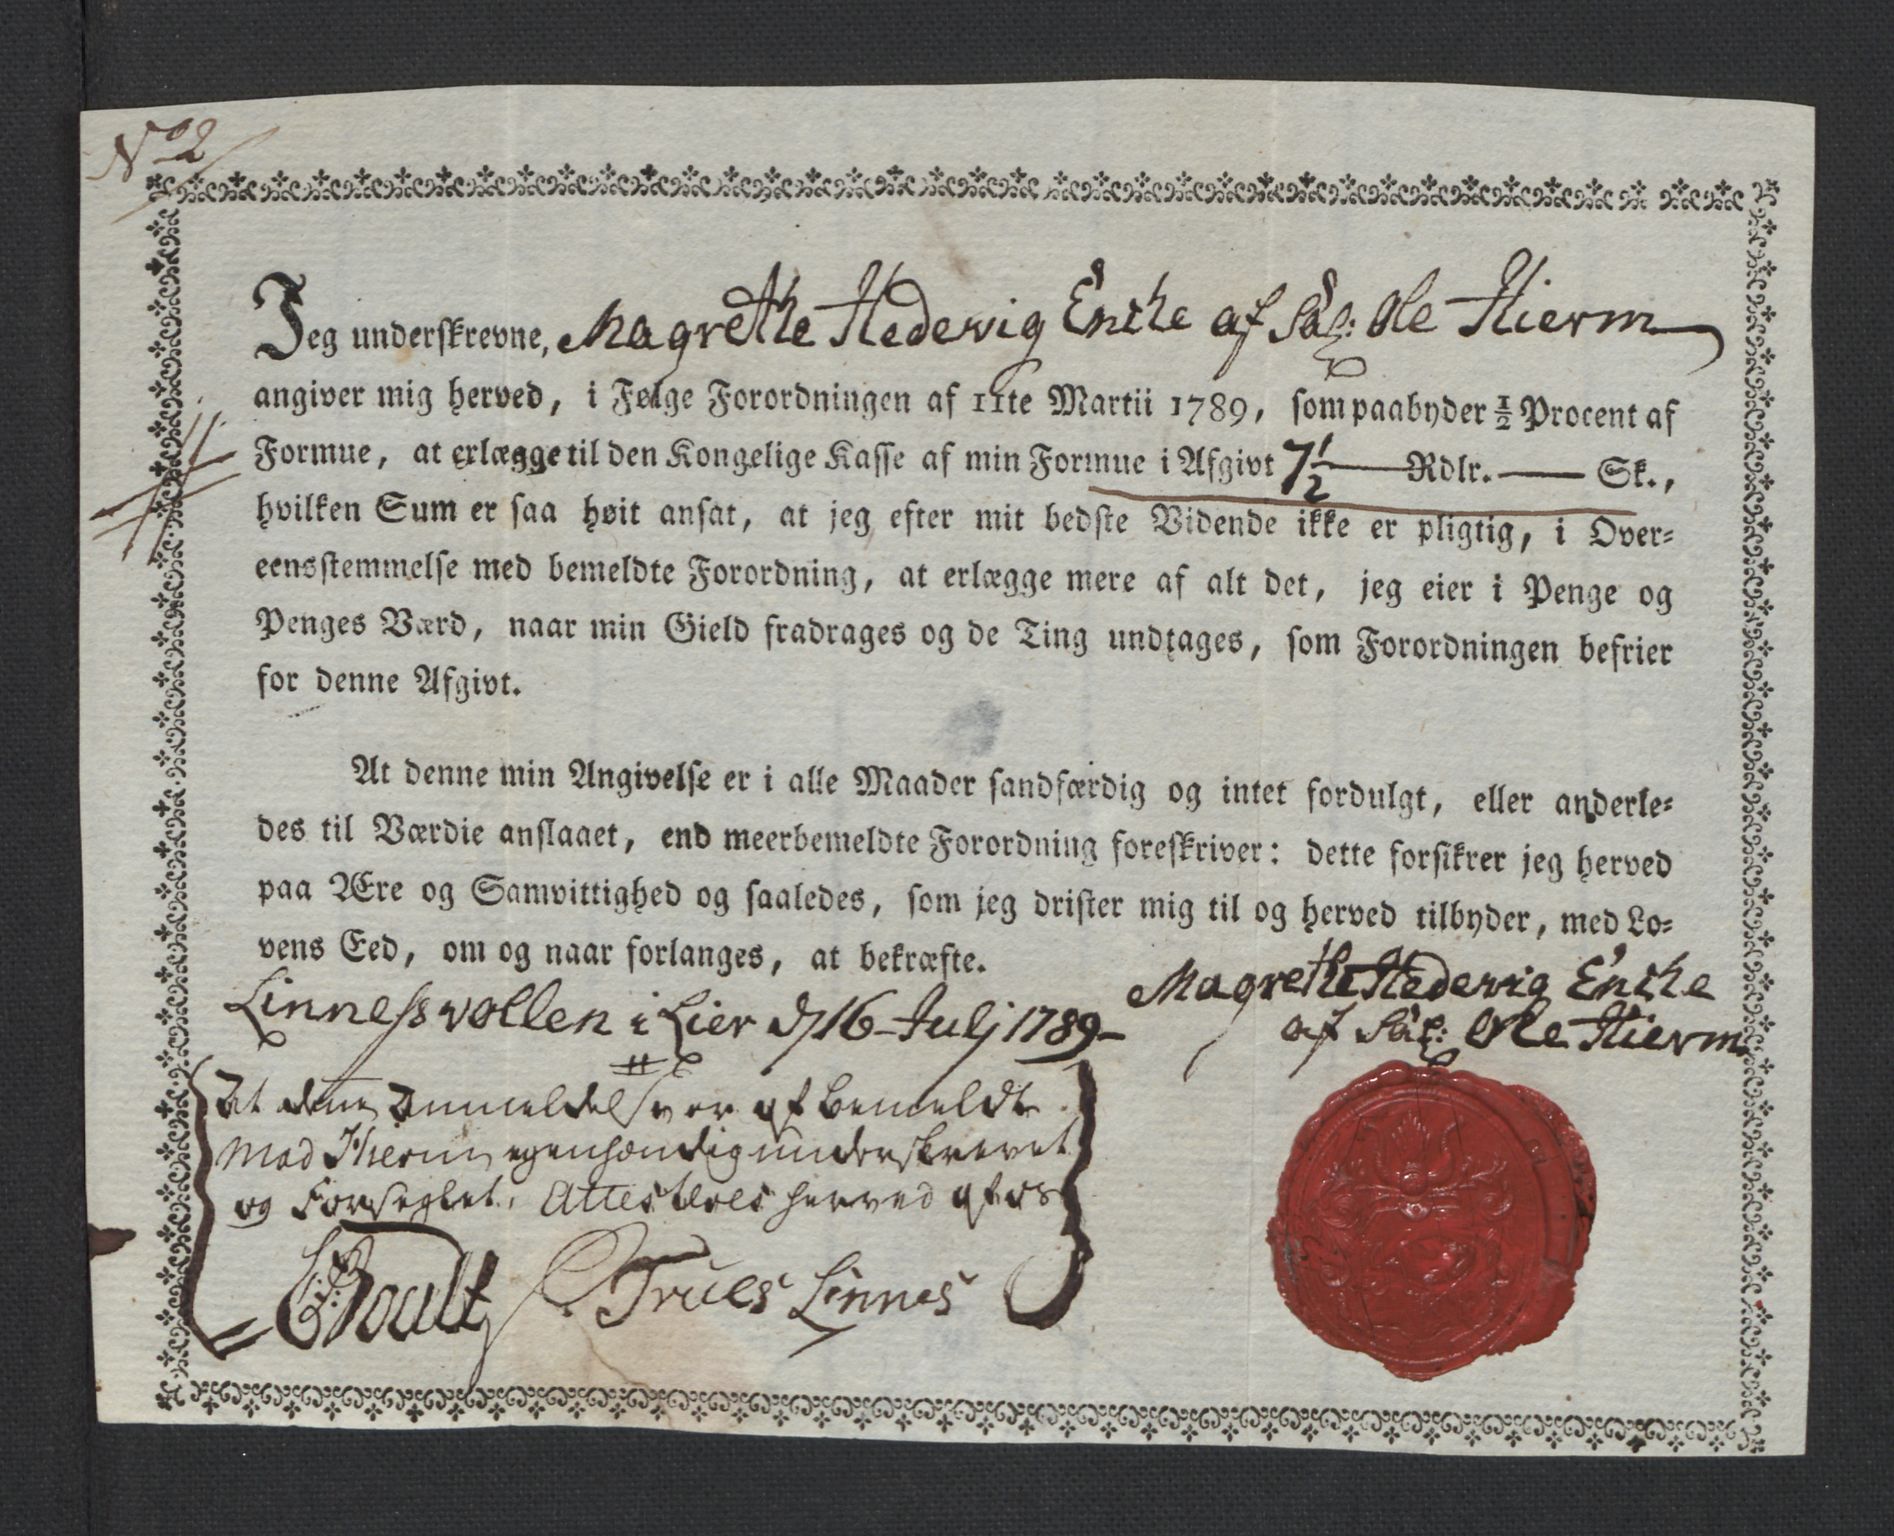 No 2
Jeg underskrevne, Magrethe Hedevig Encke af Sal: Ole Hierm
angiver mig herved, i Følge Forordningen af 11te Martii 1789, som paabyder ½ Procent af
Formue, at erlægge til den Kongelige Kasse af min Formue i Afgivt 7½ — Rdlr. — Sk.,
hvilken Sum er saa høit ansat, at jeg efter mit bedste Vidende ikke er pligtig, i Over=
eensstemmelse med bemeldte Forordning, at erlægge mere af alt det, jeg eier i Penge og
Penges Værd, naar min Gield fradrages og de Ting undtages, som Forordningen befrier
for denne Afgivt.
At denne min Angivelse er i alle Maader sandfærdig og intet fordulgt, eller anderle=
des til Værdie anslaaet, end meerbemeldte Forordning foreskriver: dette forsikrer jeg herved
paa Ære og Samvittighed og saaledes, som jeg drister mig til og herved tilbyder, med Lo=
vens Eed, om og naar forlanges, at bekræfte.
Linnessvollen i Lier d 16 Julj 1789
Magrethe Hedevig Encke
af Sal: Ole Hierm
At denne Anmeldelse er af bemeldte
Mad Hierm egenhændig underskrevet
og Forseglet, Attesteres herved af os
Trues Linnes